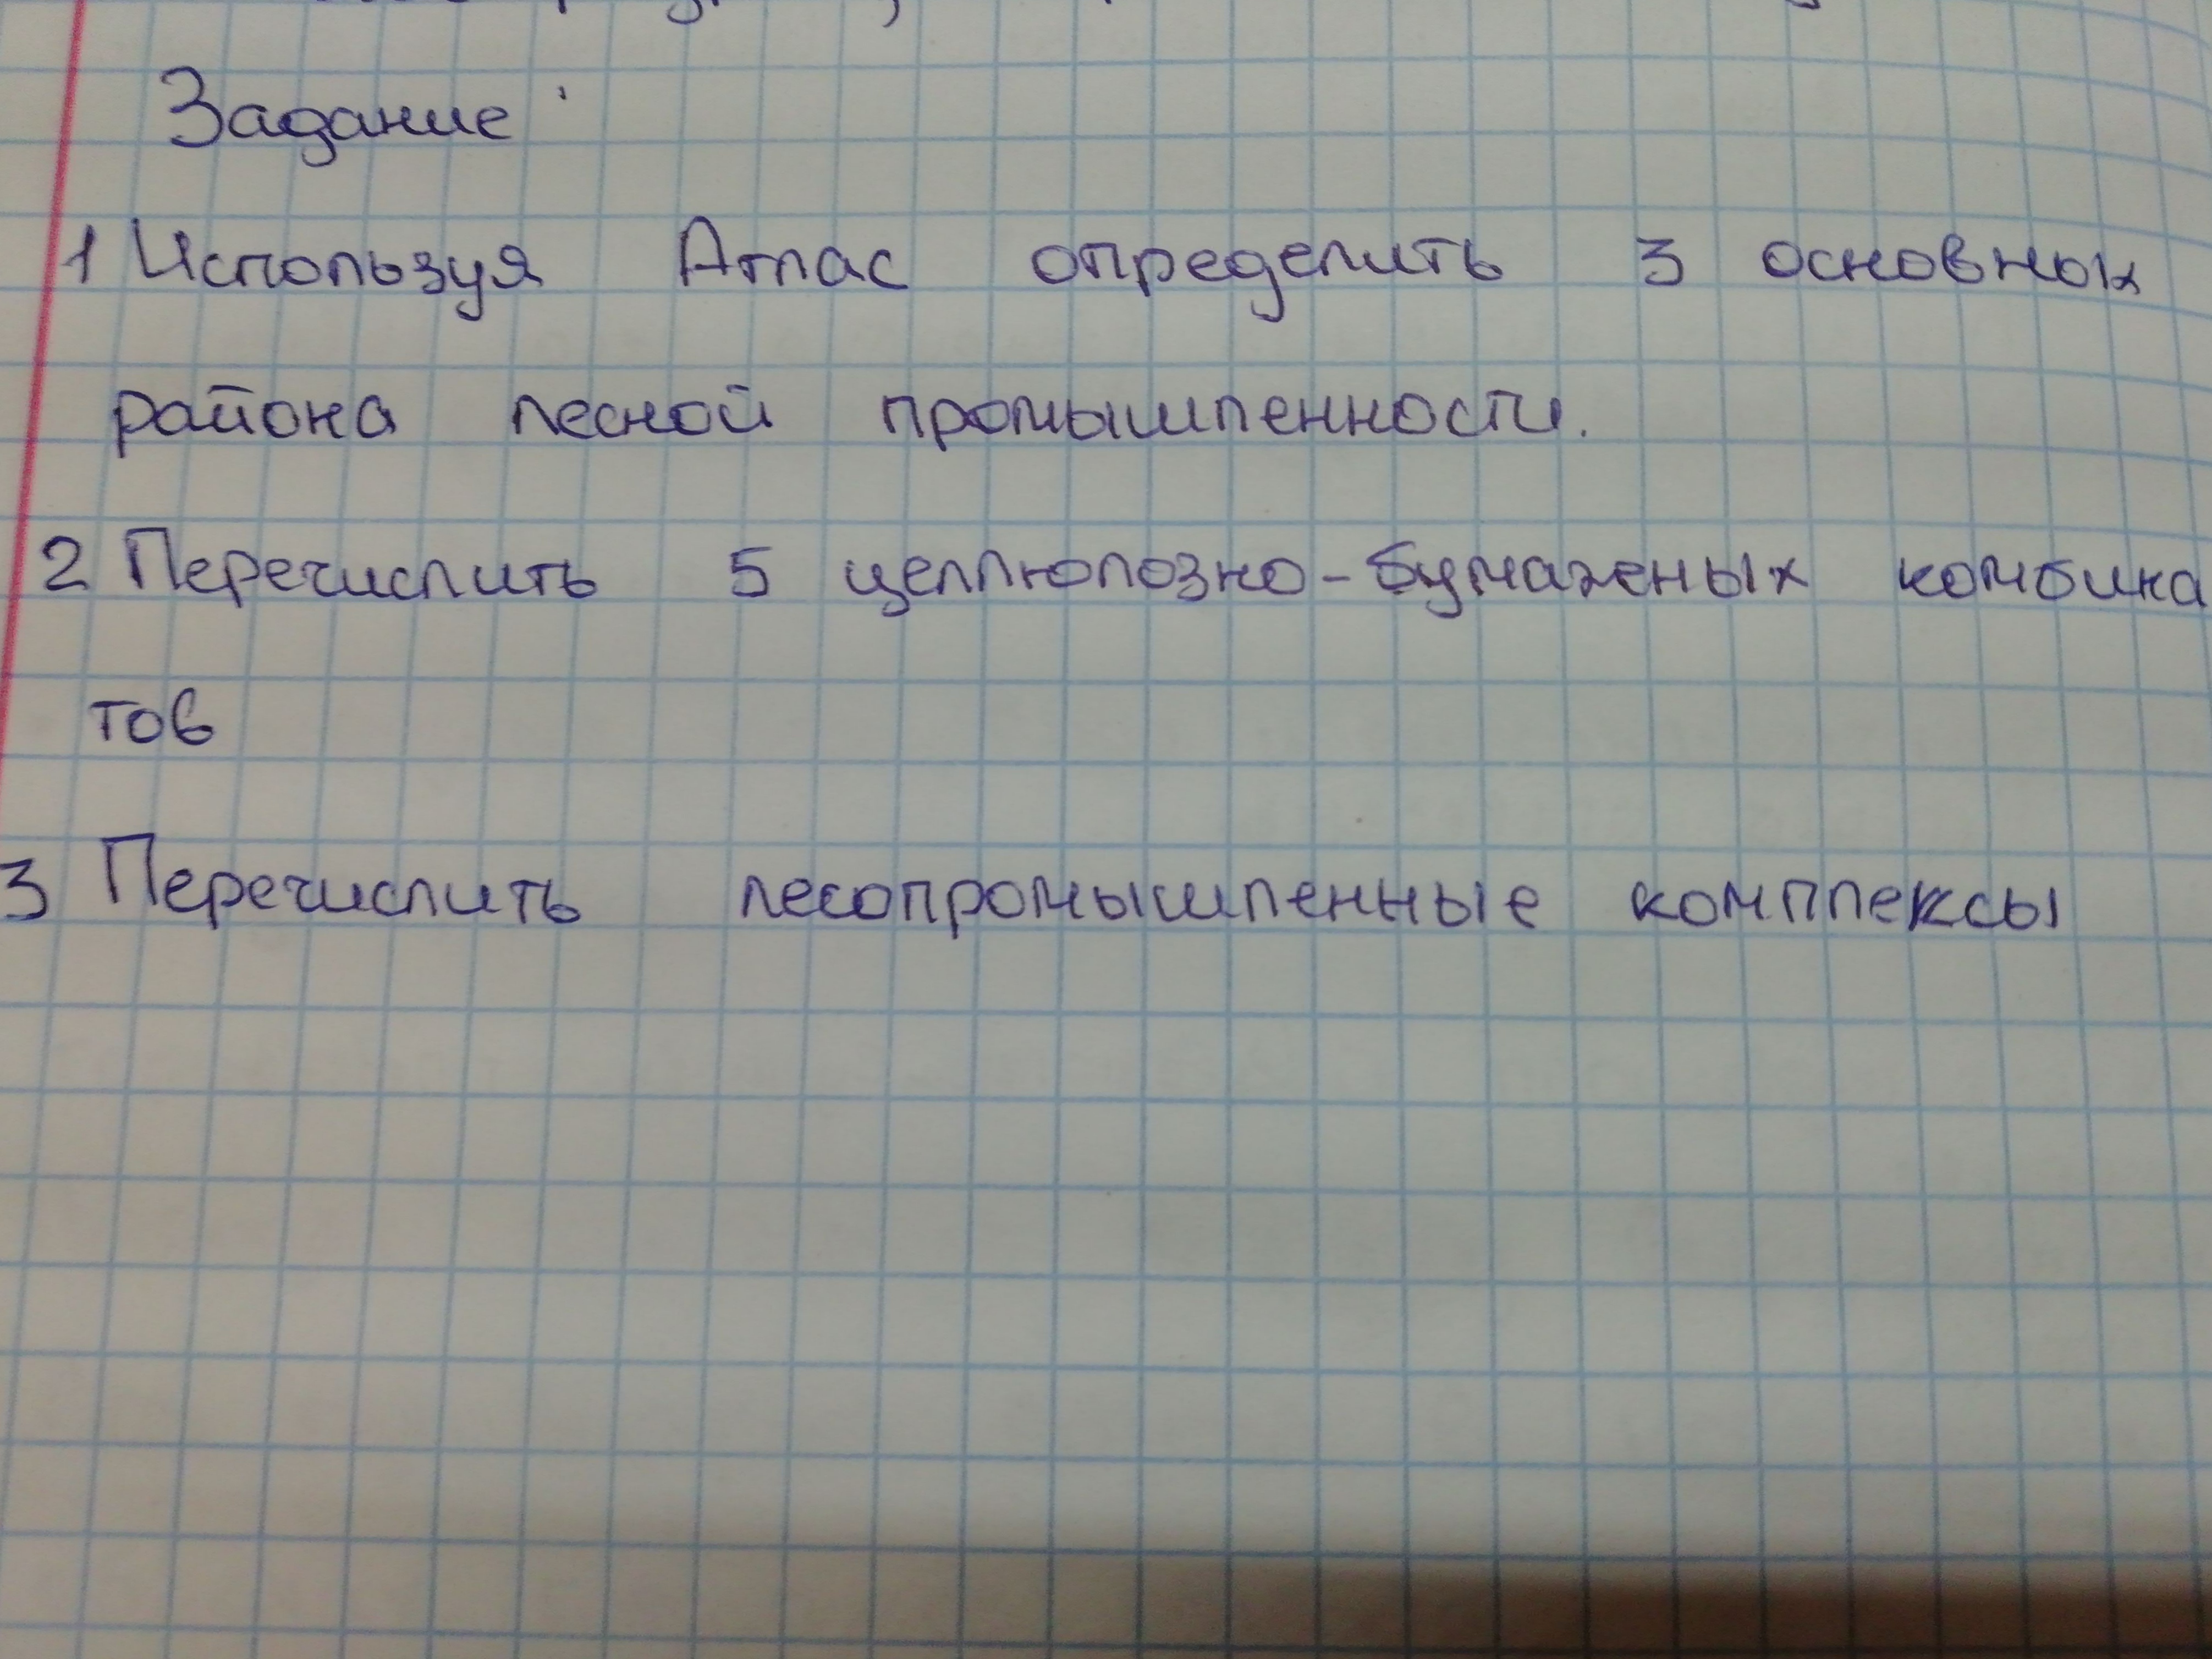 Задание:
1 Используя Атлас определить 3 основных
района лесной промышленности.
2 Перечислить 5 целлюлозно-бумаженых комбина
тов
3 Перечислить лесопромышленные комплексы